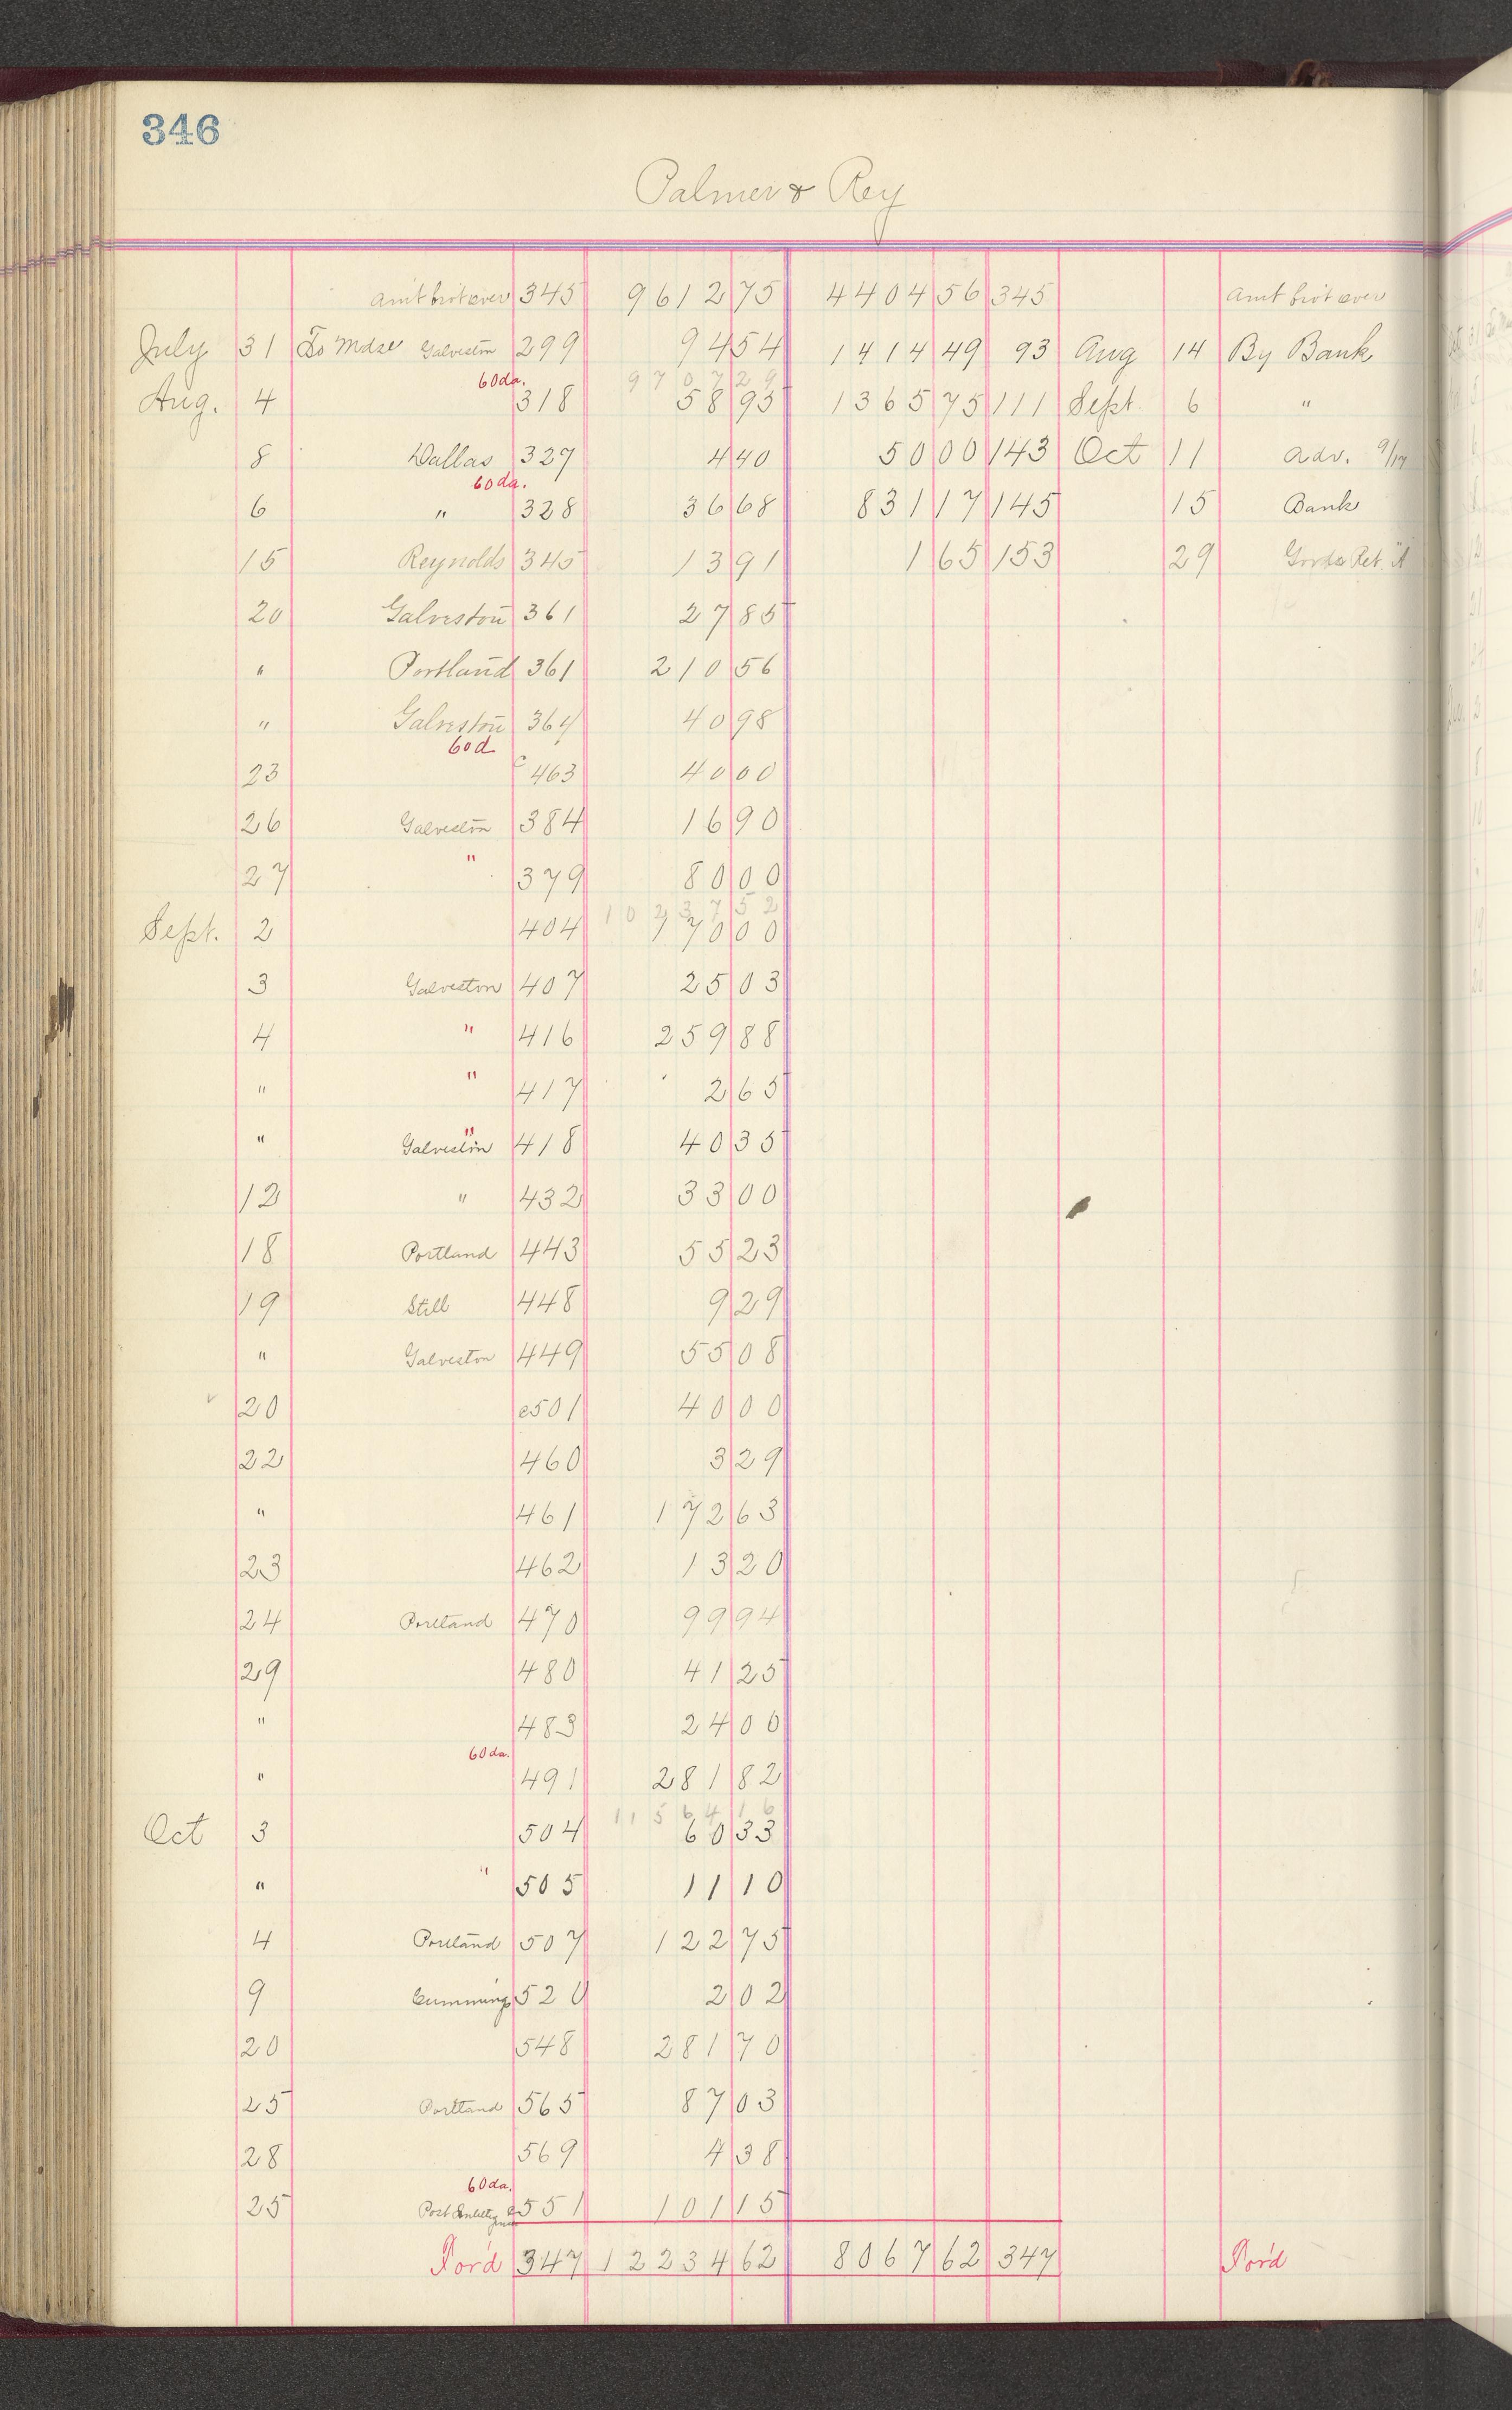 346
Palmer & Rey
Amt brot over 345 9612 75 4404 56 345 Amt brot over
July 31 To Mdse Galveston 299 94 54 1414 49 93 Aug 14 By Bank
60da. 9707 29
Aug. 4 318 58 95 1365 75 111 Sept. 6 "
8 Dallas 327 4 40 50 00 143 Oct 11 Adv. 9/17
60da.
6 " 328 36 68 831 17 145 15 Bank
15 Reynolds 345 13 91 1 65 153 29 Ret.
20 Galveston 361 27 85
" Portland 361 210 56
" Galveston 364 40 98
60d
23 c463 40 00
26 Galveston 384 16 90
27 " 379 80 00
10237 52
Sept. 2 404 170 00
3 Galveston 407 25 03
4 " 416 259 88
" " 417 2 65
" "
Galveston 418 40 35
12 " 432 33 00
18 Portland 443 55 23
19 Still 448 9 29
" Galveston 449 55 08
20 c501 40 00
22 460 3 29
" 461 172 63
23 462 13 20
24 Portland 470 99 94
29 480 41 25
" 483 24 00
60da.
" 491 281 82
11564 16
Oct 3 504 60 33
" " 505 11 10
4 Portland 507 122 75
9 Cummings 520 2 02
20 548 281 70
25 Portland 565 87 03
28 569 4 38
60da.
25 Post c551 101 15
For'd 347 12234 62 8067 62 347 For'd